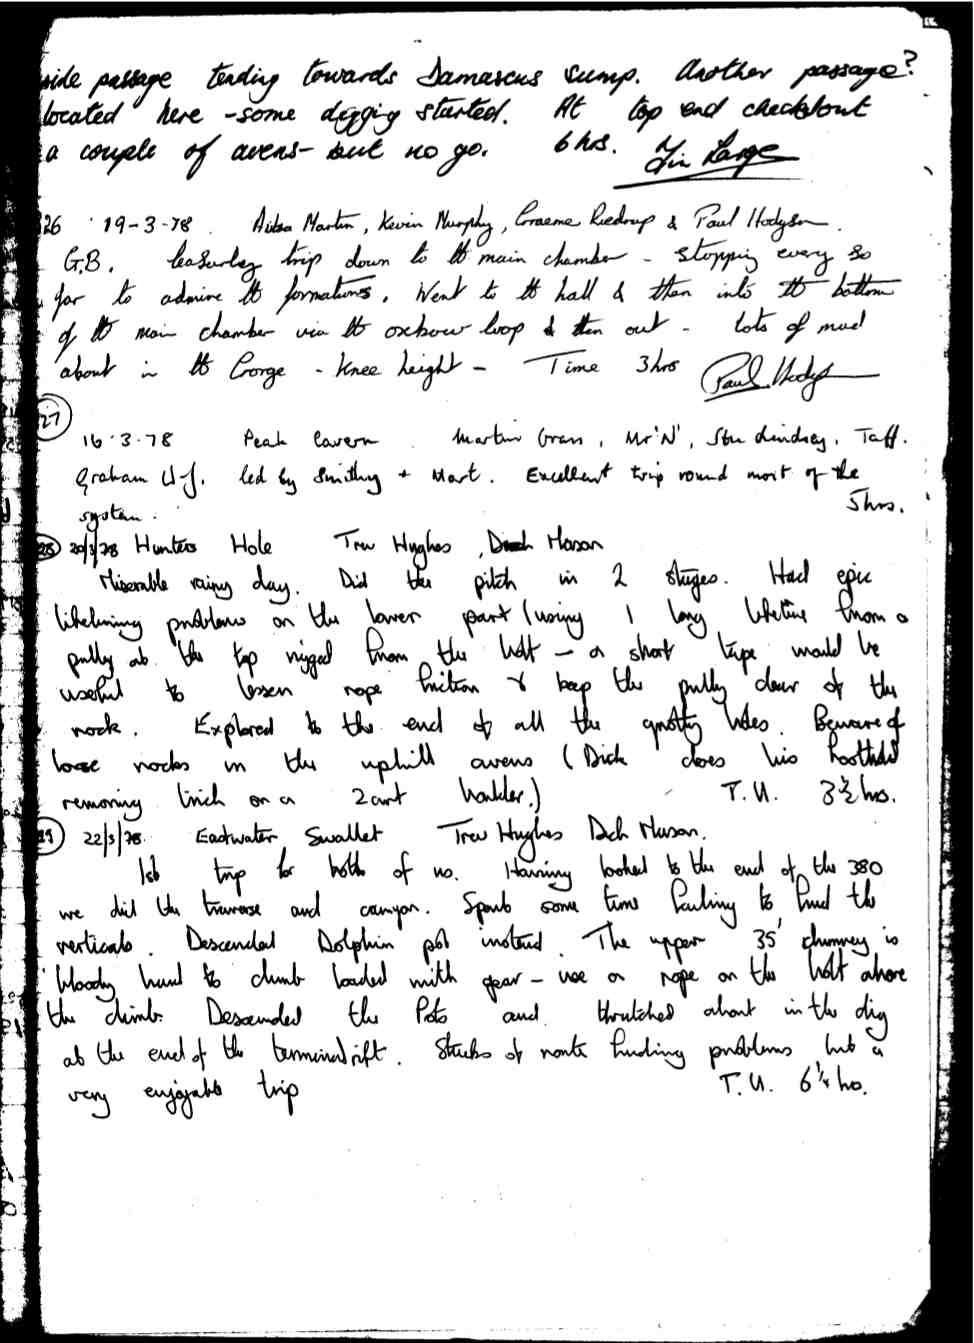 side passage tending towards Damascus sump. Another passage?
located here - some digging started. At top end checked out
a couple of avens - but no go. 6 hrs. Tim Large
26 19-3-78 Ailsa Martin, Kevin Murphy, Graeme & Paul Hodgson.
G.B. leasurley trip down to tt main chamber - stopping every so
far to admire tt formations. Went to tt hall & then into tt bottom
of tt main chamber via tt oxbow loop & then out - lots of mud
about in tt Gorge - knee height - Time 3 hrs Paul Hodgson
27
16.3.78 Peak Cavern. Martin Grass, Mr 'N', Stu Lindsey, Taff.
Graham W-J. led by Smithy + Mart. Excellent trip round most of the
system. 5 hrs.
28 20/3/78 Hunters Hole Trev Hughes, Dick Mason
Miserable rainy day. Did the pitch in 2 stages. Had epic
lifelining problems on the lower part (using 1 long lifeline from a
pully at the top rigged from the bolt - a short tape would be
useful to lessen rope friction & keep the pully clear of the
rock. Explored to the end of all the grotty holes. Beware of
loose rocks in the uphill avens (Dick does his foothold
removing trick on a 2 cwt boulder.) T.H. 3½ hrs.
29 22/3/78 Eastwater Swallet Trev Hughes Dick Mason.
1st trip for both of us. Having looked to the end of the 380
we did the traverse and canyon. Spent some time failing to find the
verticals. Descended Dolphin pot instead. The upper 35' chimney is
bloody hard to climb loaded with gear - use a rope on the bolt above
the climb. Descended the Pots and thrutched about in the dig
at the end of the terminal rift. Stacks of route finding problems but a
very enjoyable trip T.H. 6¼ hrs.